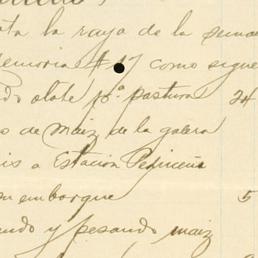 ta la raya de la sema
emoria #17 como sigue
do olote pa. pastura 24
s de maiz de la galera
is a Estacion Pedriceña
su embarque 5
ando y pesando maiz